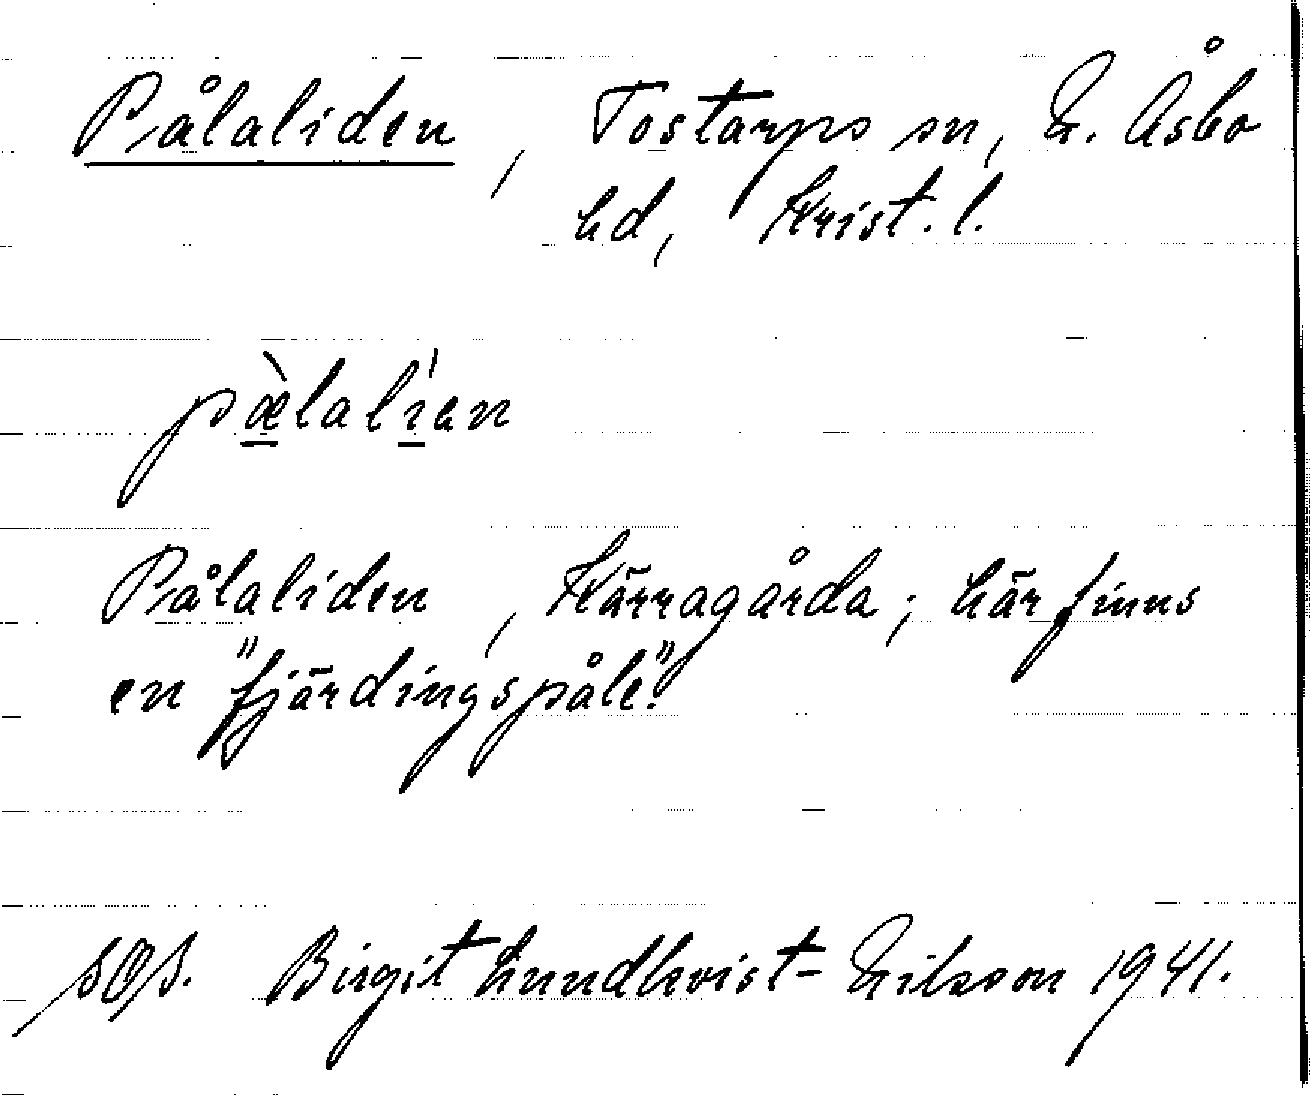 Pålaliden, Tostarps sn, N. Åsbo
hd, Krist. l.
pæ̀lalíen
Pålaliden, Kärragårda; här finns
en "fjärdingspåle".
Birgit Lundkvist-Nilsson 1941.